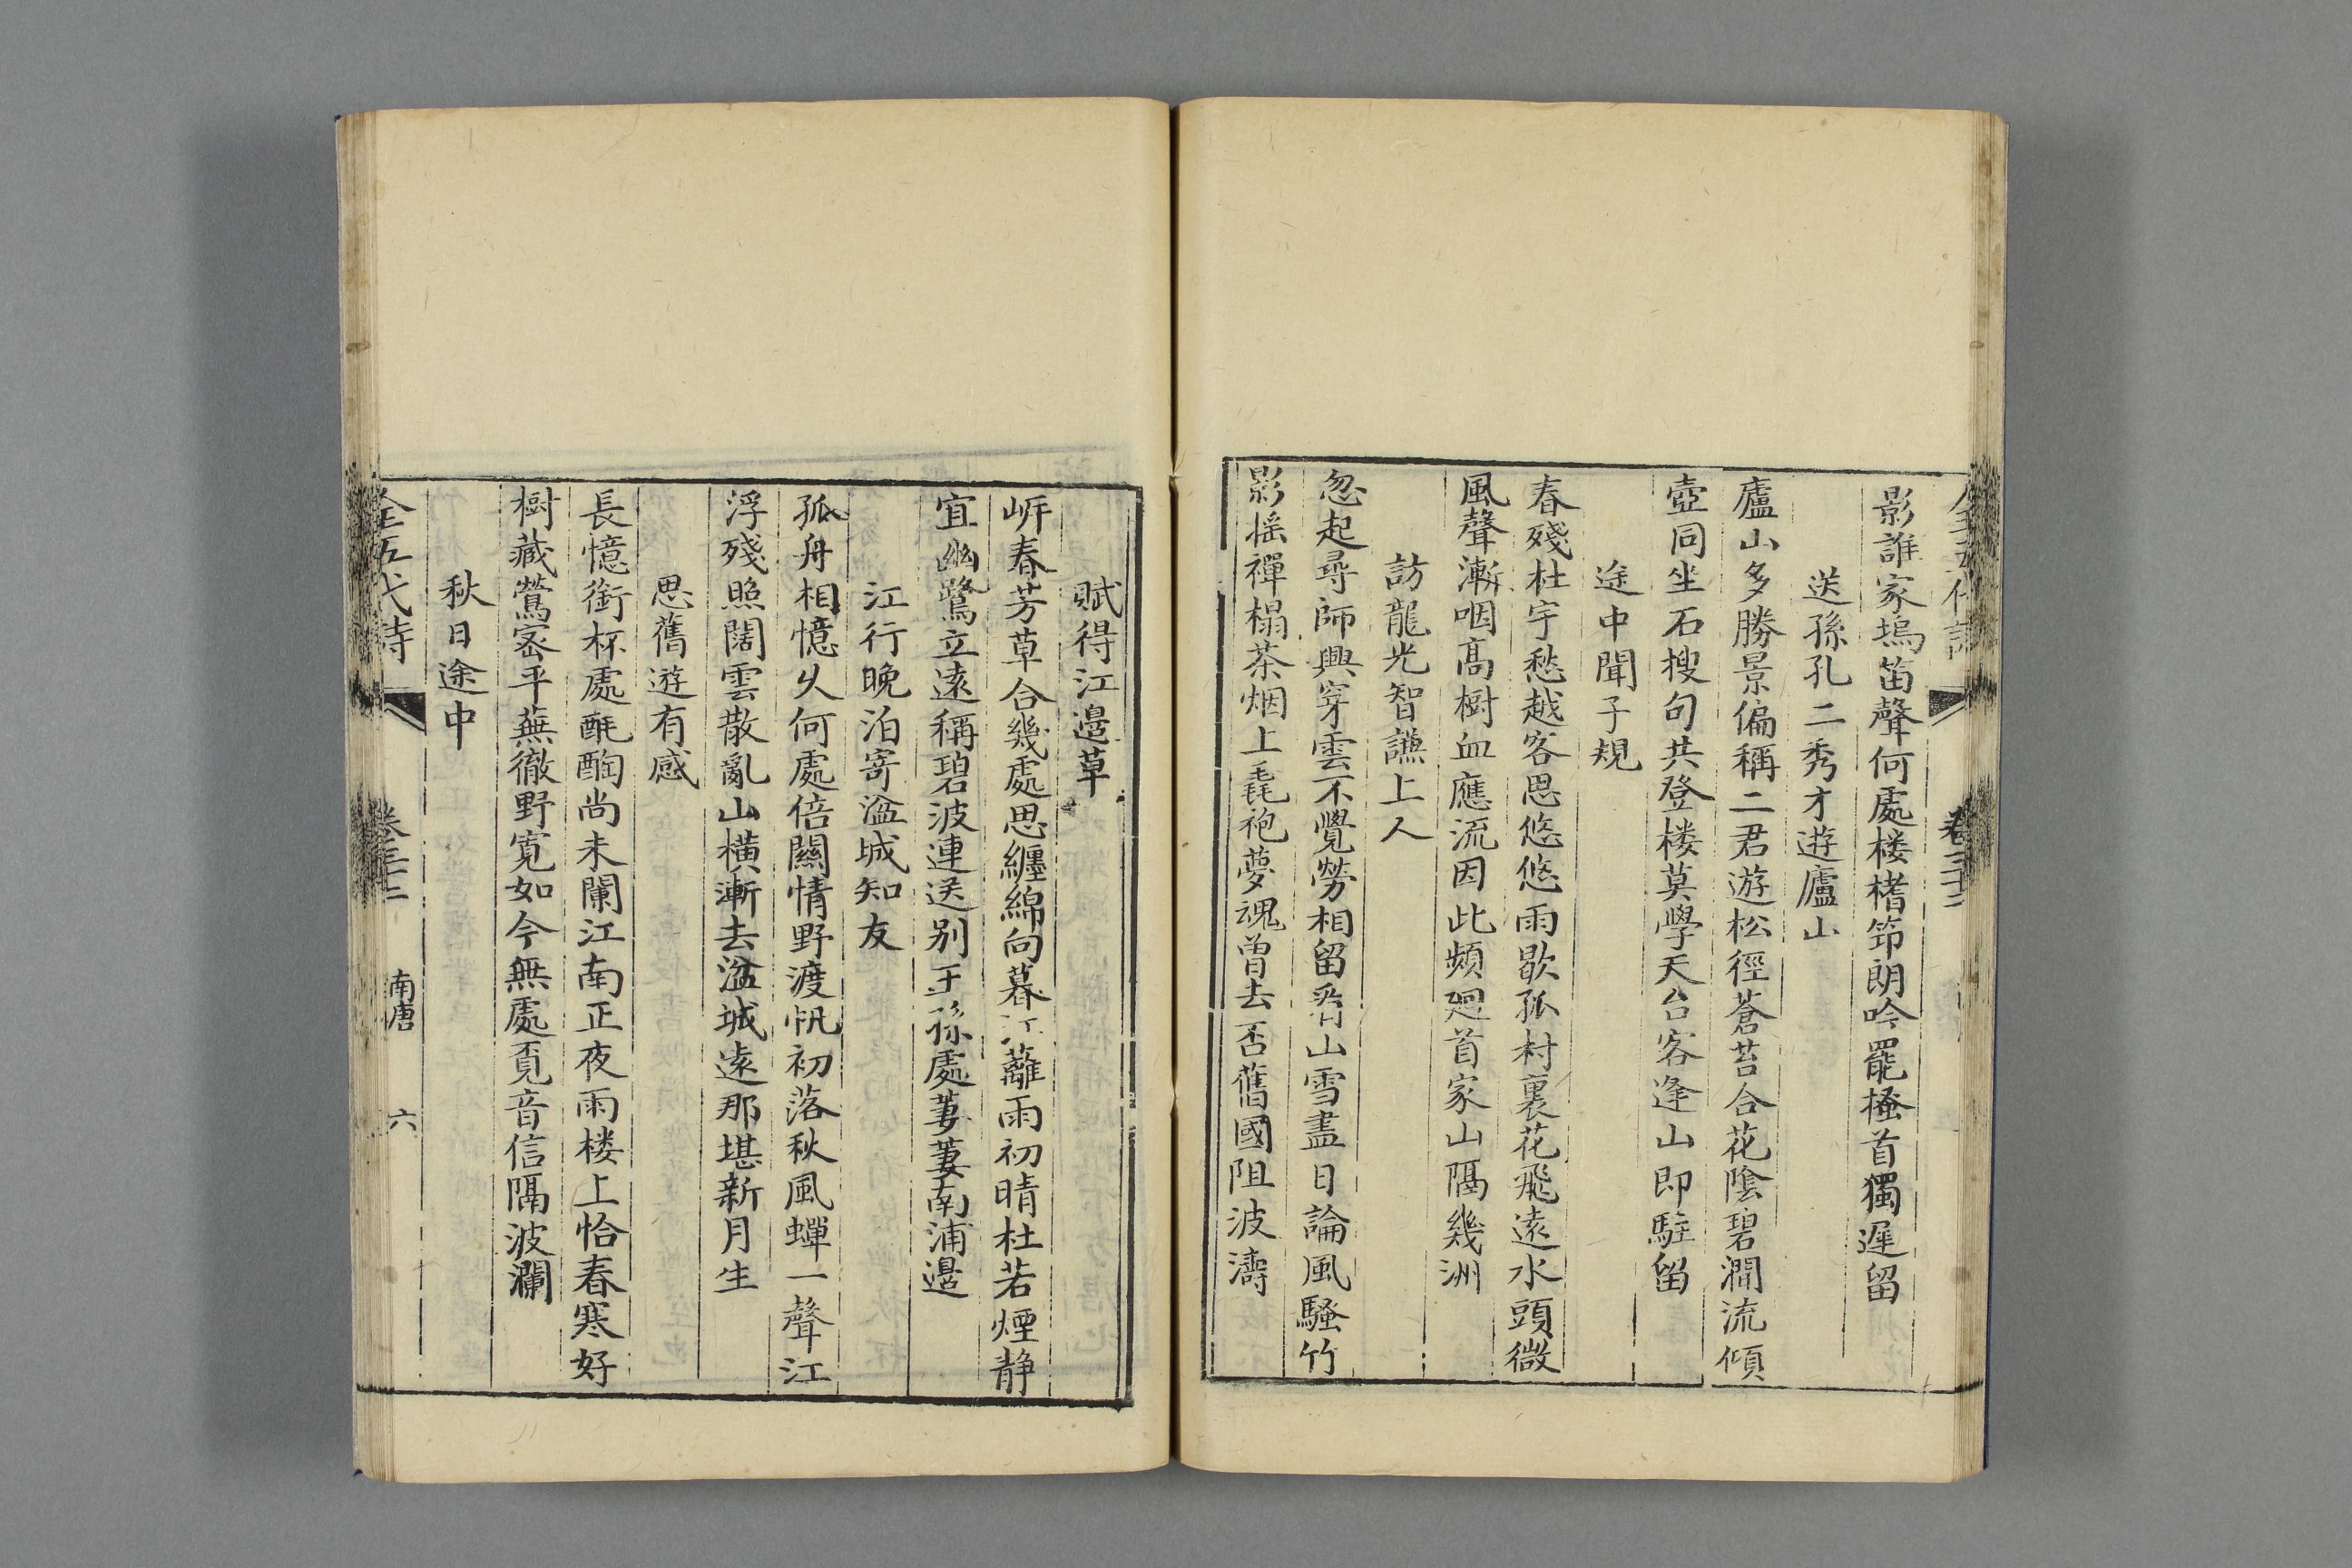 影誰家塢笛聲何處楼楮笻朗吟罷搔首獨遲留
送孫孔二秀才遊廬山
廬山多勝景偏稱二君遊松徑蒼苔合花陰碧澗流傾
壺同坐石搜句共登楼莫學天台客逢山即駐留
途中聞子規
春殘杜宇愁越客思悠悠雨歇孤村裏花飛遠水頭微
風聲漸咽高樹血應流因此頻廻首家山隔幾洲
訪龍光智謙上人
忽起尋師興穿雲不覺勞相留看山雪盡日論風騷竹
影搖禪榻茶烟上毳袍夢魂曾去否舊國阻波濤
賦得江邊草
岍春芳草合幾處思纏綿向暮江蘺雨初晴杜若煙靜
宜幽鷺立遠稱碧波連送别王孫處萋萋南浦邊
江行晚泊寄湓城知友
孤舟相憶久何處倍關情野渡帆初落秋風蟬一聲江
浮殘照闊雲散亂山橫漸去湓城遠那堪新月生
思舊遊有感
長憶銜杯處酕醄尚未闌江南正夜雨楼上恰春寒好
樹藏鶯密平蕪徹野寬如今無處覓音信隔波瀾
秋日途中
全五代詩 卷三十二 南唐 六